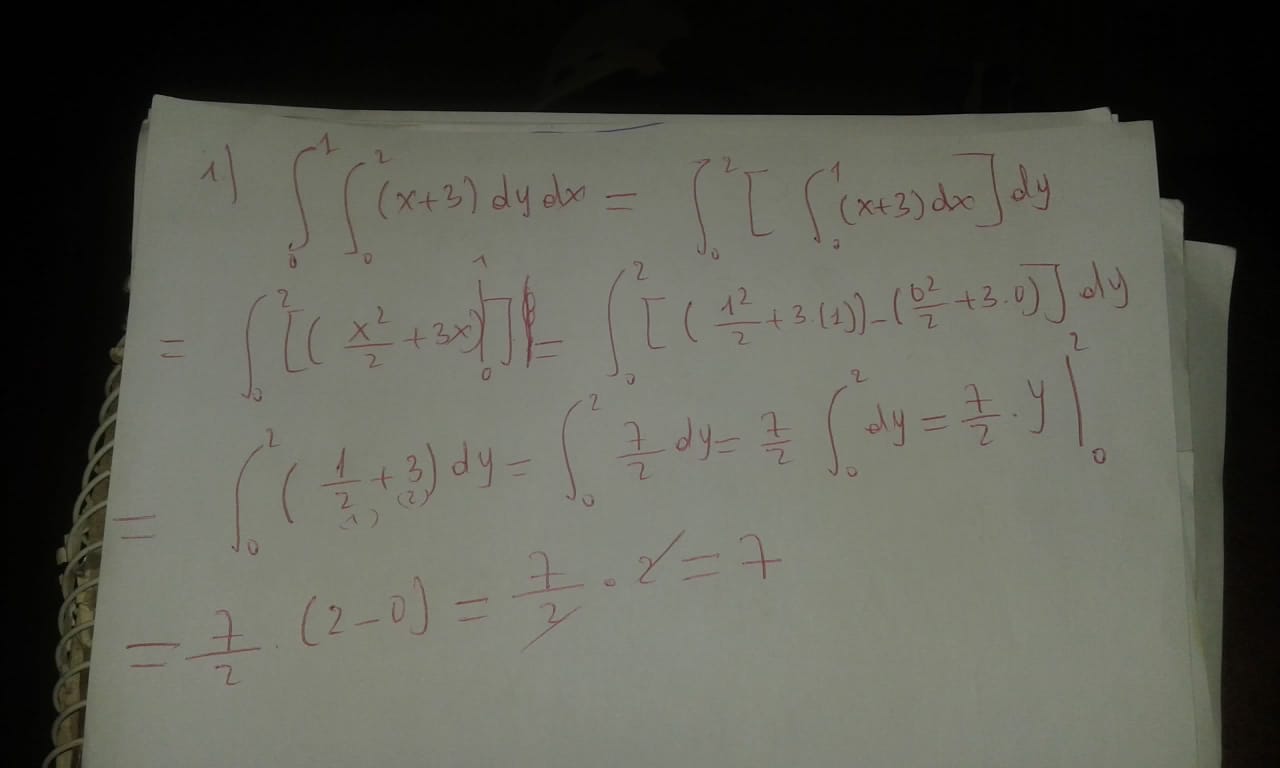 1) ∫₀¹ ∫₀² (x+3) dy dx = ∫₀² [ ∫₀¹ (x+3) dx ] dy
= ∫₀² [( x²/2 + 3x)|₀¹ ] = ∫₀² [ ( 1²/2 + 3.(1)) - ( 0²/2 + 3.0) ] dy
= ∫₀² ( 1/2 + 3) dy = ∫₀² 7/2 dy = 7/2 ∫₀² dy = 7/2 . y |₀²
(1) (2)
= 7/2 . (2-0) = 7/2 . 2 = 7